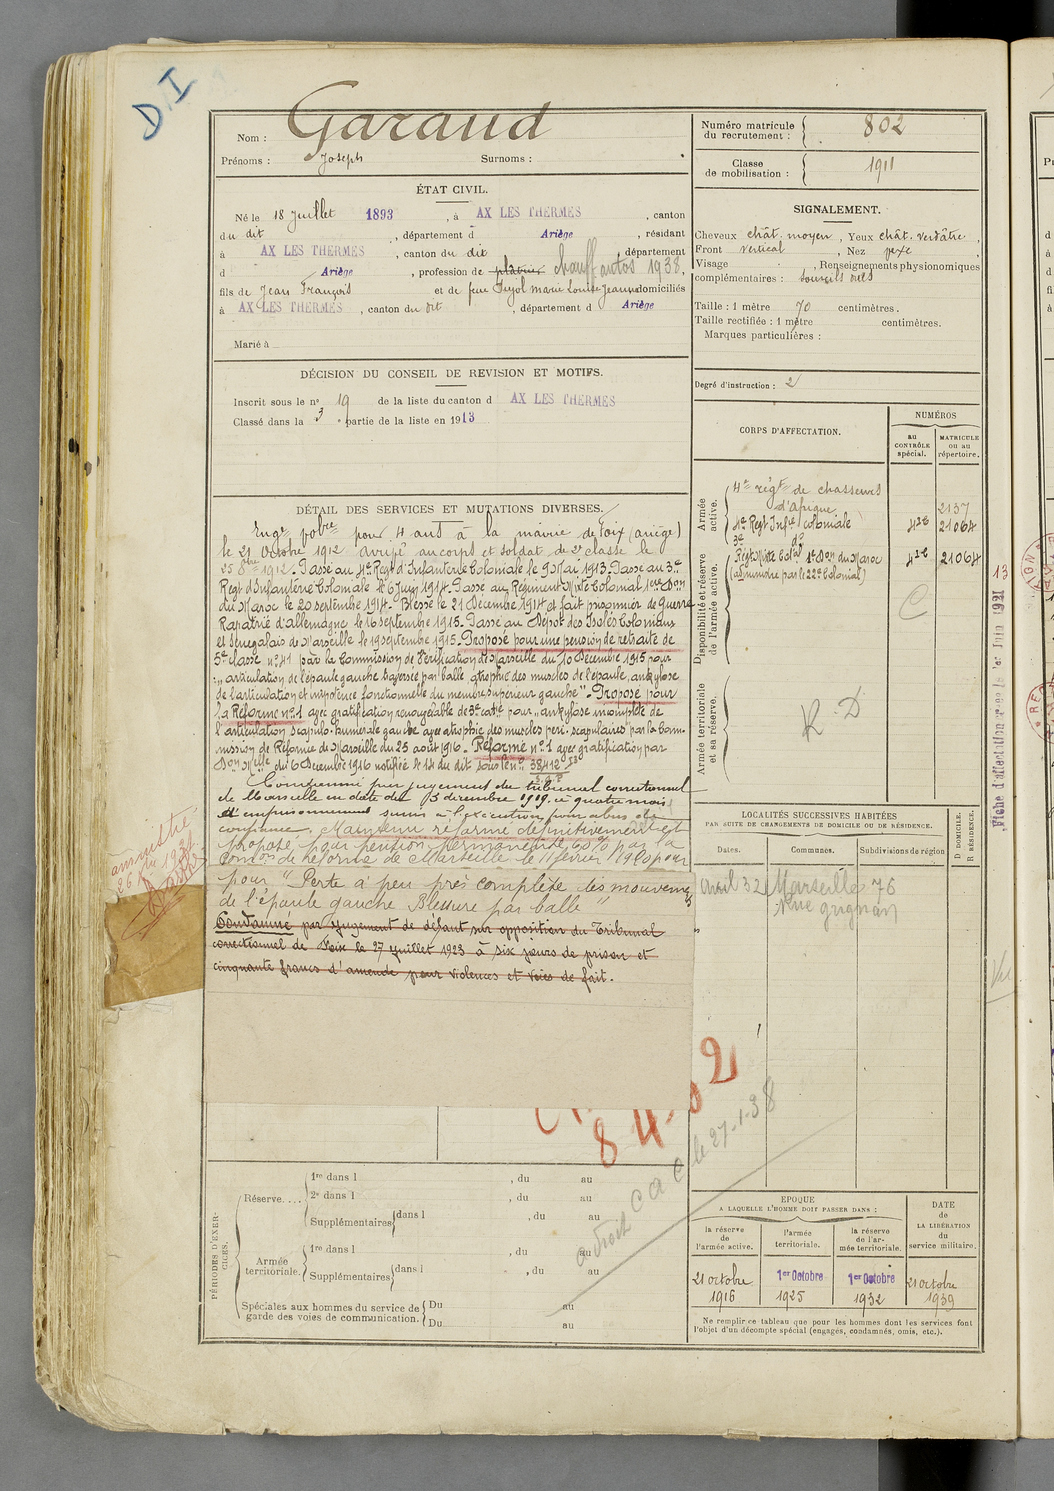 D.I
Nom : Garaud
Prénoms : Joseph Surnoms :
ÉTAT CIVIL.
Né le 18 Juillet 1893, à AX LES THERMES, canton
du dit, département d Ariège, résidant
à AX LES THERMES, canton du dit, département
d Ariège, profession de platrier chauff autos 1938.
fils de Jean François et de feue Pujol marie Louise Jeanne domiciliés
à AX LES THERMES, canton du dit, département d Ariège
Marié à
DÉCISION DU CONSEIL DE REVISION ET MOTIFS.
Inscrit sous le n° 19 de la liste du canton d AX LES THERMES
Classé dans la 3e partie de la liste en 1913
DÉTAIL DES SERVICES ET MUTATIONS DIVERSES.
Engé vobre pour 4 ans à la mairie de Foix (ariège)
le 21 Octobre 1912 arrivé au corps et soldat de 2e classe le
25 8bre 1912. Passé au 4e Regt d'Infanterie Coloniale le 9 Mai 1913. Passé au 3e
Régt d'Infanterie Coloniale le 6 Juin 1914. Passé au Régiment Mixte Colonial 1ere Don
du Maroc le 20 septembre 1914. Blessé le 21 Décembre 1914 et fait prisonnier de Guerre
Rapatrié d'allemagne le 16 septembre 1915. Passé au Dépot des Isolés Coloniaux
et Sénégalais de Marseille le 19 septembre 1915. Proposé pour une pension de retraite de
5e classe n° 41 par la Commission de Vérification de Marseille du 10 Décembre 1915 pour
"articulation de l'épaule gauche traversée par balle atrophie des muscles de l'épaule, ankylose
de l'articulation et impotence fonctionnelle du membre supérieur gauche". Proposé pour
la Réforme n° 1 avec gratification renouvelable de 3e catie pour "ankylose incomplète de
l'articulation scapulo-humérale gauche avec atrophie des muscles peri-scapulaires par la Com-
mission de Réforme de Marseille du 25 août 1916. Réformé n° 1 avec gratification par
Don Mlle du 6 Décembre 1916 notifiée le 14 du dit sous le n° 38412
Condamné par jugement du tribunal correctionnel
de Marseille en date du 3 décembre 1919, à quatre mois
d'emprisonnement sursis à l'exécution pour abus de
confiance. Maintenu réformé définitivement et
proposé pour pension permanente 60% par la
Comon de réforme de Marseille le 11 février 1920 pour
pour "Perte à peu près complète des mouvements
de l'épaule gauche Blessure par balle"
Condamné par jugement de défaut sur opposition du Tribunal
correctionnel de Foix le 27 juillet 1923 à six jours de prison et
cinquante francs d'amende pour violences et voies de fait.
amnistié
PÉRIODES D'EXERCICES.
Réserve.... 1re dans l , du au
2e dans l , du au
Supplémentaires dans l , du au
Armée territoriale. 1re dans l , du au
Supplémentaires dans l , du au
Spéciales aux hommes du service de garde des voies de communication. Du au
Du au
Numéro matricule du recrutement : 802
Classe de mobilisation : 1911
SIGNALEMENT.
Cheveux chât. moyen, Yeux chât. verdâtre,
Front vertical, Nez vexe,
Visage , Renseignements physionomiques
complémentaires :
Taille : 1 mètre 70 centimètres.
Taille rectifiée : 1 mètre centimètres.
Marques particulières :
Degré d'instruction : 2
CORPS D'AFFECTATION.
NUMÉROS
au CONTRÔLE spécial.
MATRICULE ou au répertoire.
Armée active.
4e régt de chasseurs
d'afrique 2137
4e Regt Infie coloniale 21064
3e do
Disponibilité et réserve de l'armée active.
Régt Mixte Colal 1e Don du Maroc 21064
(administré par le 22e Colonial)
C
Armée territoriale et sa réserve.
R.D
13
Fiche d'affectation
LOCALITÉS SUCCESSIVES HABITÉES
PAR SUITE DE CHANGEMENTS DE DOMICILE OU DE RÉSIDENCE.
Dates. Communes. Subdivisions de région
D DOMICILE.
R RÉSIDENCE.
avril 32 Marseille 76
rue grignan
84-02
a droit CAC le 27-1-38
EPOQUE
A LAQUELLE L'HOMME DOIT PASSER DANS :
la réserve de l'armée active.
l'armée territoriale.
la réserve de l'armée territoriale.
DATE de LA LIBÉRATION du service militaire.
21 octobre 1916
1er Octobre 1925
1er Octobre 1932
21 octobre 1939
Ne remplir ce tableau que pour les hommes dont les services font
l'objet d'un décompte spécial (engagés, condamnés, omis, etc.).